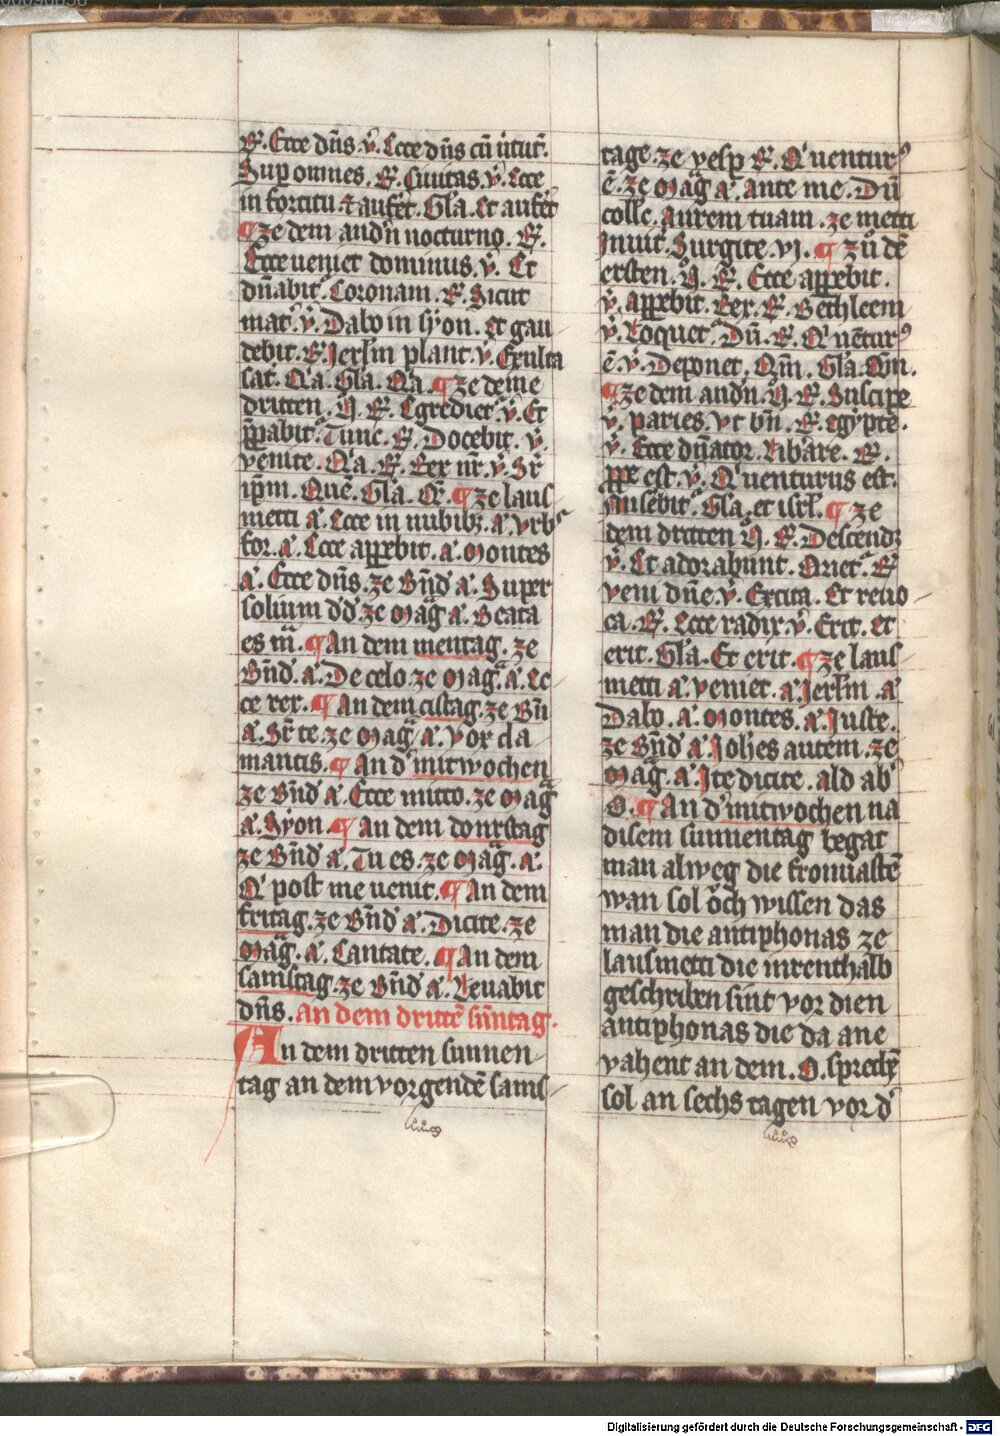 R. Ecce dn̄s. v̄. Ecce dn̄s cū ūtut᷑.
Sup omnes. R. Ciuitas. v̄. Ecce
in fortitu. ⁊ aufer̄. Gl̄a. Et aufer̄
¶ ze dem andn̄ nocturno. R.
Ecce ueniet dominus. v̄. Et
dn̄abit᷑. Coronam. R. Sicut
mat᷑. v̄. Dabo in sẏon. Et gau
debit. R. Jerl̄m plant. v̄. Exulta
sat. Q'a. Gl̄a. Q'a. ¶ ze deme
dritten. N̄. R. Egrediet᷑. v̄. Et
p̄pabit᷑. Tunc. R. Docebit. v̄.
venite. Q'a. R. Rex nr̄. v̄. Sr̄
ip̄m. Quē. Gl̄a. Q'. ¶ ze laus
metti a. Ecce in nubibꝫ. a. Vrbꝰ
for. a. Ecce appebit. a. Montes
a. Ecce dn̄s. ze Bn̄d a. Super
solium d'd. ze Mag̃ a. Beata
es m̄. ¶ An dem mentag. ze
Bn̄d. a. De celo. ze Mag̃. a. Ec
ce rex. ¶ An dem cistag. ze Bn̄
a. Sr̄ te. ze Mag̃ a. Vox cla
mantis. ¶ An d' mitwochen
ze Bn̄d a. Ecce mitto. ze Mag̃
a. Sẏon. ¶ An dem donrstag
ze Bn̄d a. Tu es. ze Mag̃. a.
Q' post me uenit. ¶ An dem
fritag. ze Bn̄d a. Dicite. ze
Mag̃. a. Cantate. ¶ An dem
samstag. ze Bn̄d a. Leuabit
dn̄s. an dem drittē sūntag.
An dem dritten sunnen-
tag an dem vorgendē sams-
tage. ze vesp R. Q'uenturꝰ
ē. ze Mag̃ a. ante me. Dū
colle. Aurem tuam. ze metti
Inuit᷑. Surgite. vj. ¶ zů dē
ersten. N̄. R. Ecce appebit.
v̄. appebit. Rex. R. Bethleem
v̄. Loquet᷑. Dū. R. Q'uēturꝰ
ē. v̄. Deponet. Qm̄. Gl̄a. Qm̄.
¶ ze dem andn̄. N̄. R. Suscipe
v̄. paries. Vt bn̄. R. egypte.
v̄. Ecce dn̄ator. Libare. R.
ꝓpe est. v̄. Q'uenturus est.
Misebit᷑. Gl̄a. et isrl̄. ¶ ze
dem dritten N̄. R. Descendꝫ
v̄. Et adorabunt. Oriet᷑. R
veni dn̄e. v̄. Excita. Et reuo-
ca. R. Ecce radix. v̄. Erit. Et
erit. Gl̄a. Et erit. ¶ ze laus-
metti a. veniet. a. Jerl̄m. a
Dabo. a. Montes. a. Juste.
ze Bn̄d a. Joh̄es autem. ze
Mag̃. a. Ite dicite. ald ab'
O. ¶ An d' mitwochen na
disem sunnentag begat
man alweg die fronuastē
wan sol ŏch wissen das
man die antiphonas ze
lausmetti die inrenthalb
geschriben sint vor dien
antiphonas die da ane
vahent an dem. O. sprechē
sol an sechs tagen vor d'
Digitalisierung gefördert durch die Deutsche Forschungsgemeinschaft - DFG